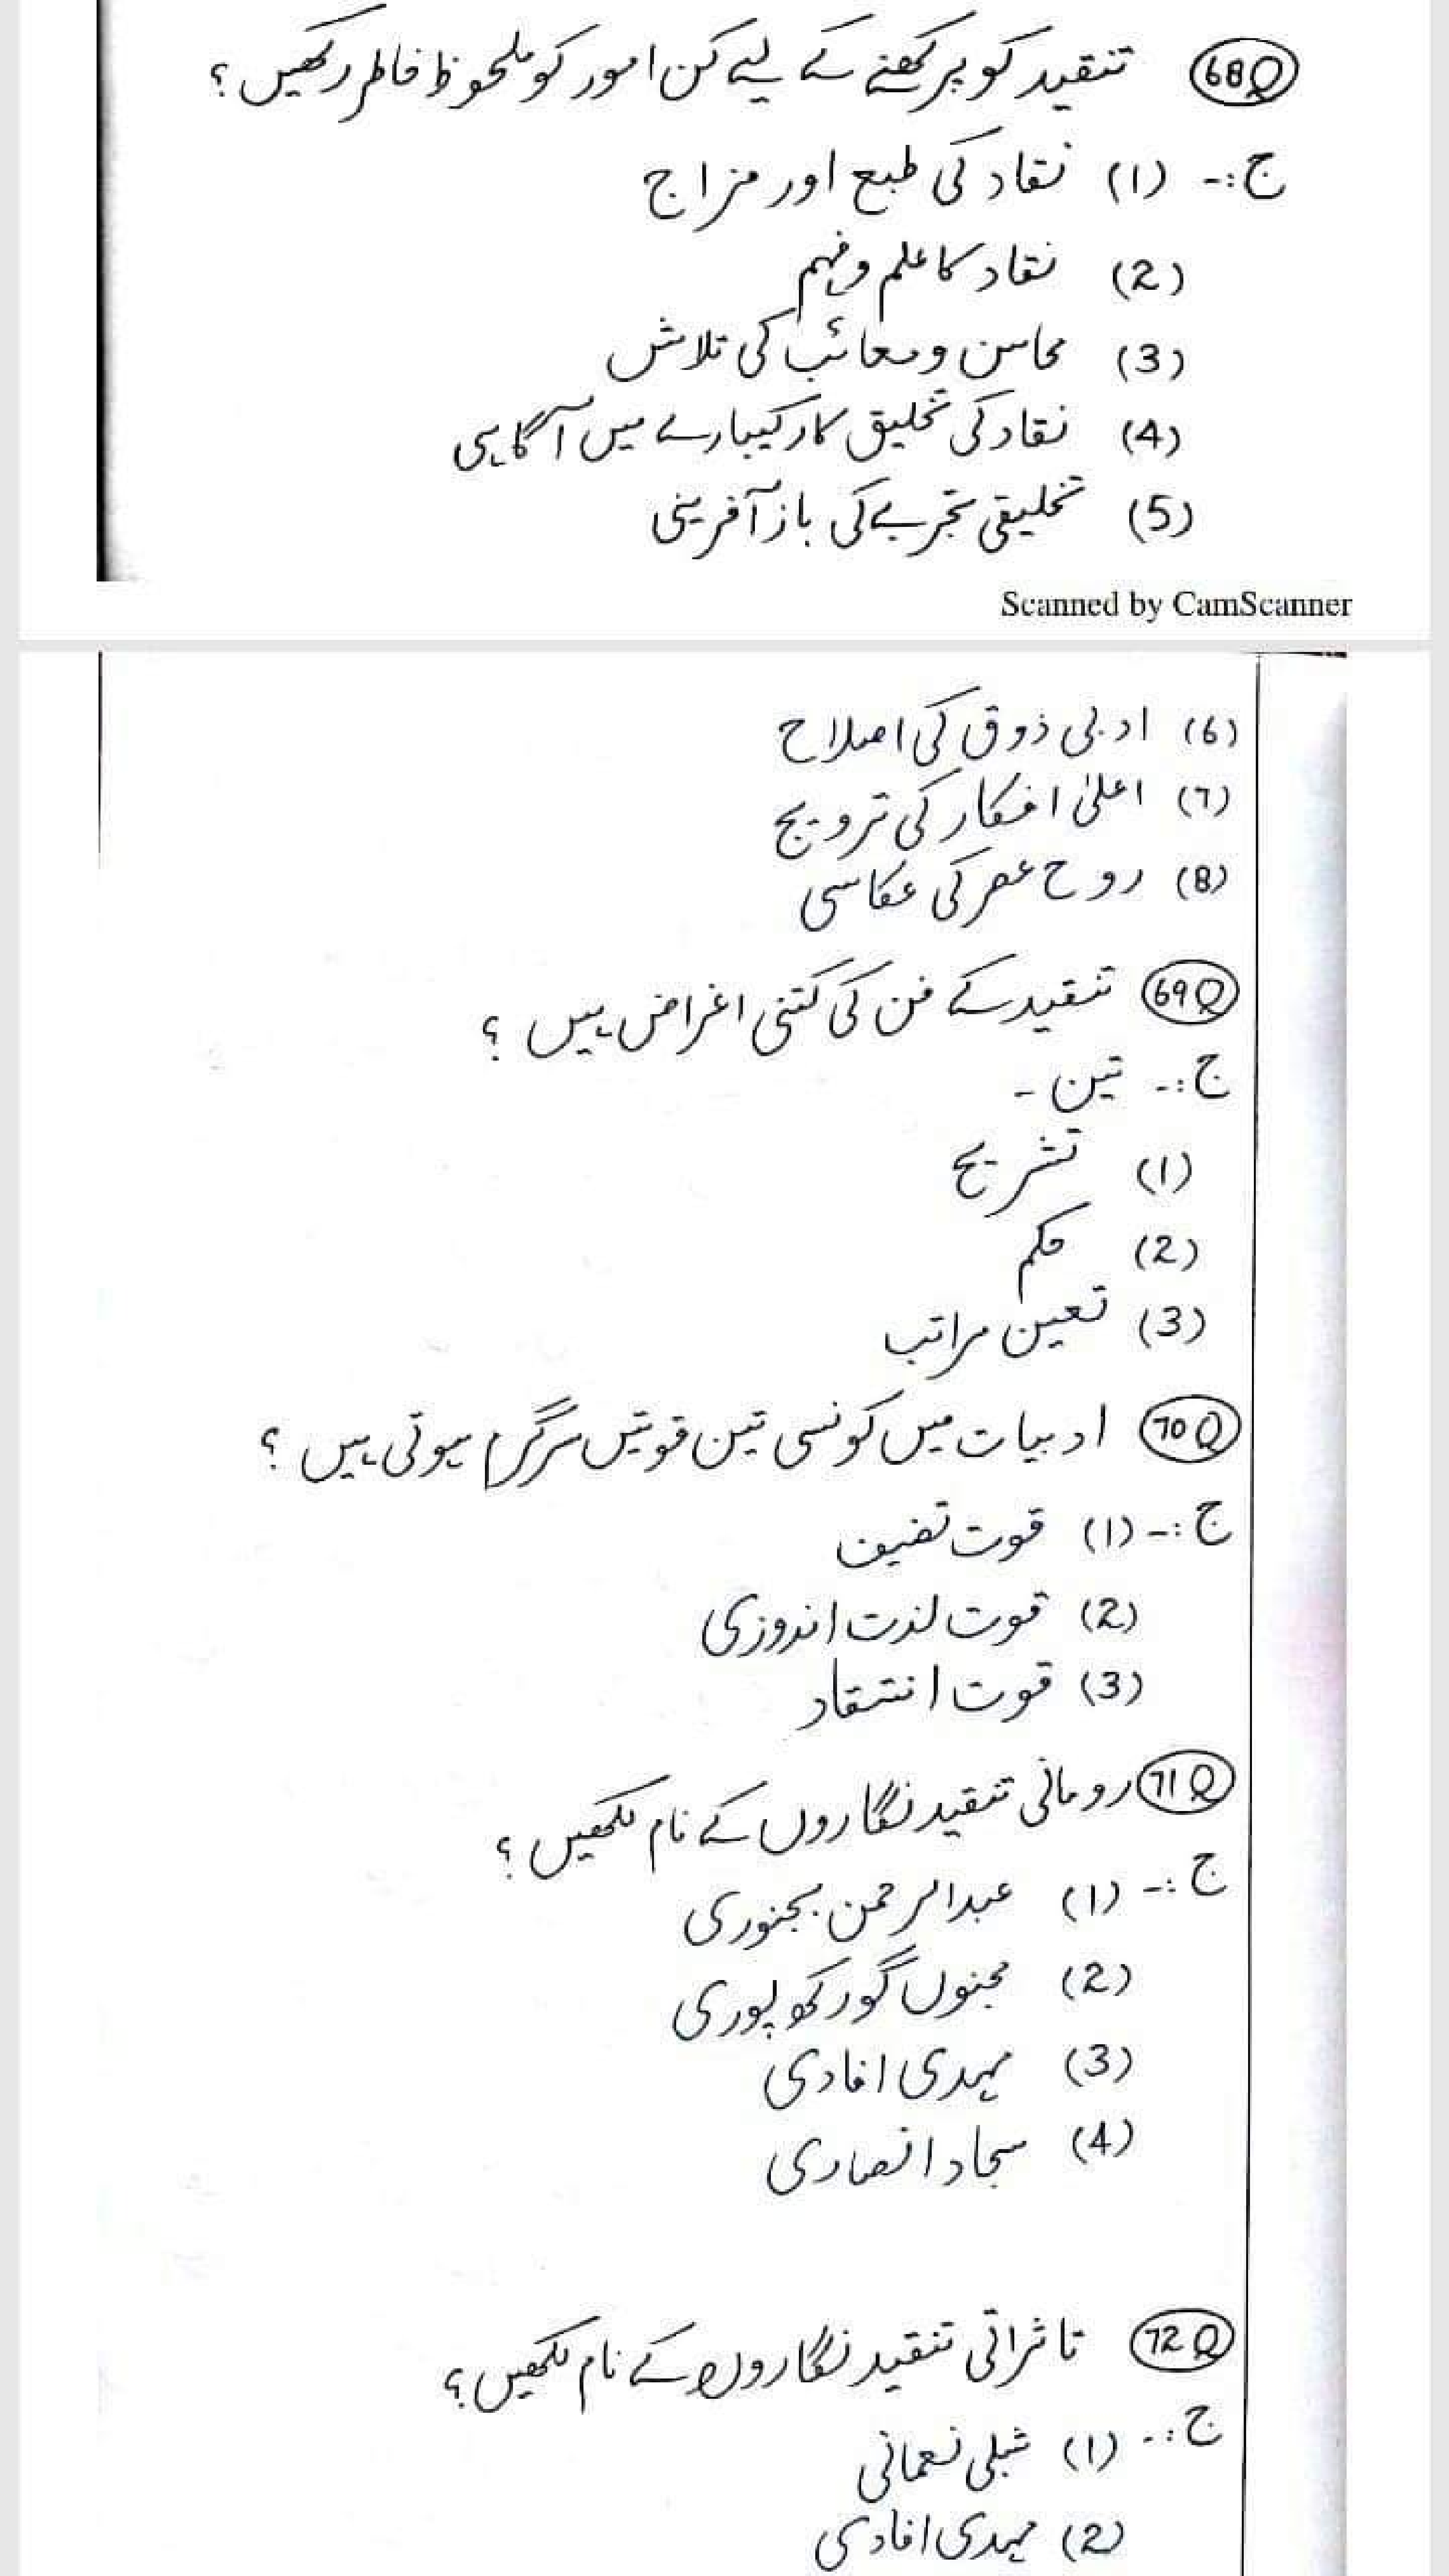 68Q تنقید کو پرکھنے کے لیے کن امور کو ملحوظ خاطر رکھیں ؟
ج :- (1) نقاد کی طبع اور مزاج
(2) نقاد کا علم و فہم
(3) محاسن و معائب کی تلاش
(4) نقاد کی تخلیق کار کیبارے میں آگاہی
(5) تخلیقی تجربے کی باز آفرینی
Scanned by CamScanner
(6) ادبی ذوق کی اصلاح
(7) اعلیٰ افکار کی ترویج
(8) روح عصر کی عکاسی
69Q تنقید کے فن کی کتنی اغراض ہیں ؟
ج :- تین -
(1) تشریح
(2) حکم
(3) تعین مراتب
70Q ادبیات میں کونسی تین قوتیں سرگرم ہوتی ہیں ؟
ج :- (1) قوت تصنیف
(2) قوت لذت اندوزی
(3) قوت انتقاد
71Q رومانی تنقید نگاروں کے نام لکھیں ؟
ج :- (1) عبدالرحمن بجنوری
(2) مجنوں گورکھ پوری
(3) مہدی افادی
(4) سجاد انصاری
72Q تاثراتی تنقید نگاروں کے نام لکھیں ؟
ج :- (1) شبلی نعمانی
(2) مہدی افادی